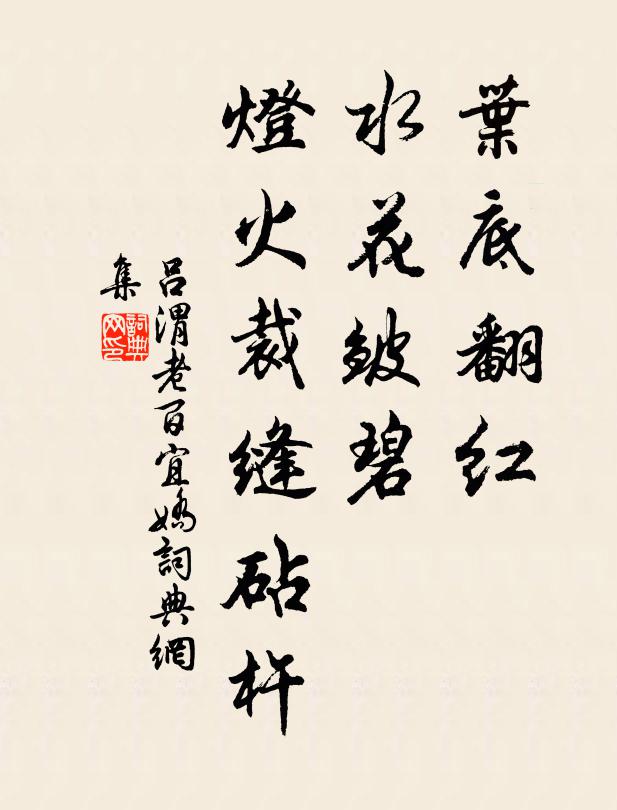 葉底翻紅
水花皺碧
燈火裁縫砧杵
呂渭老百宜嬌詞典網
集
詞典
网印